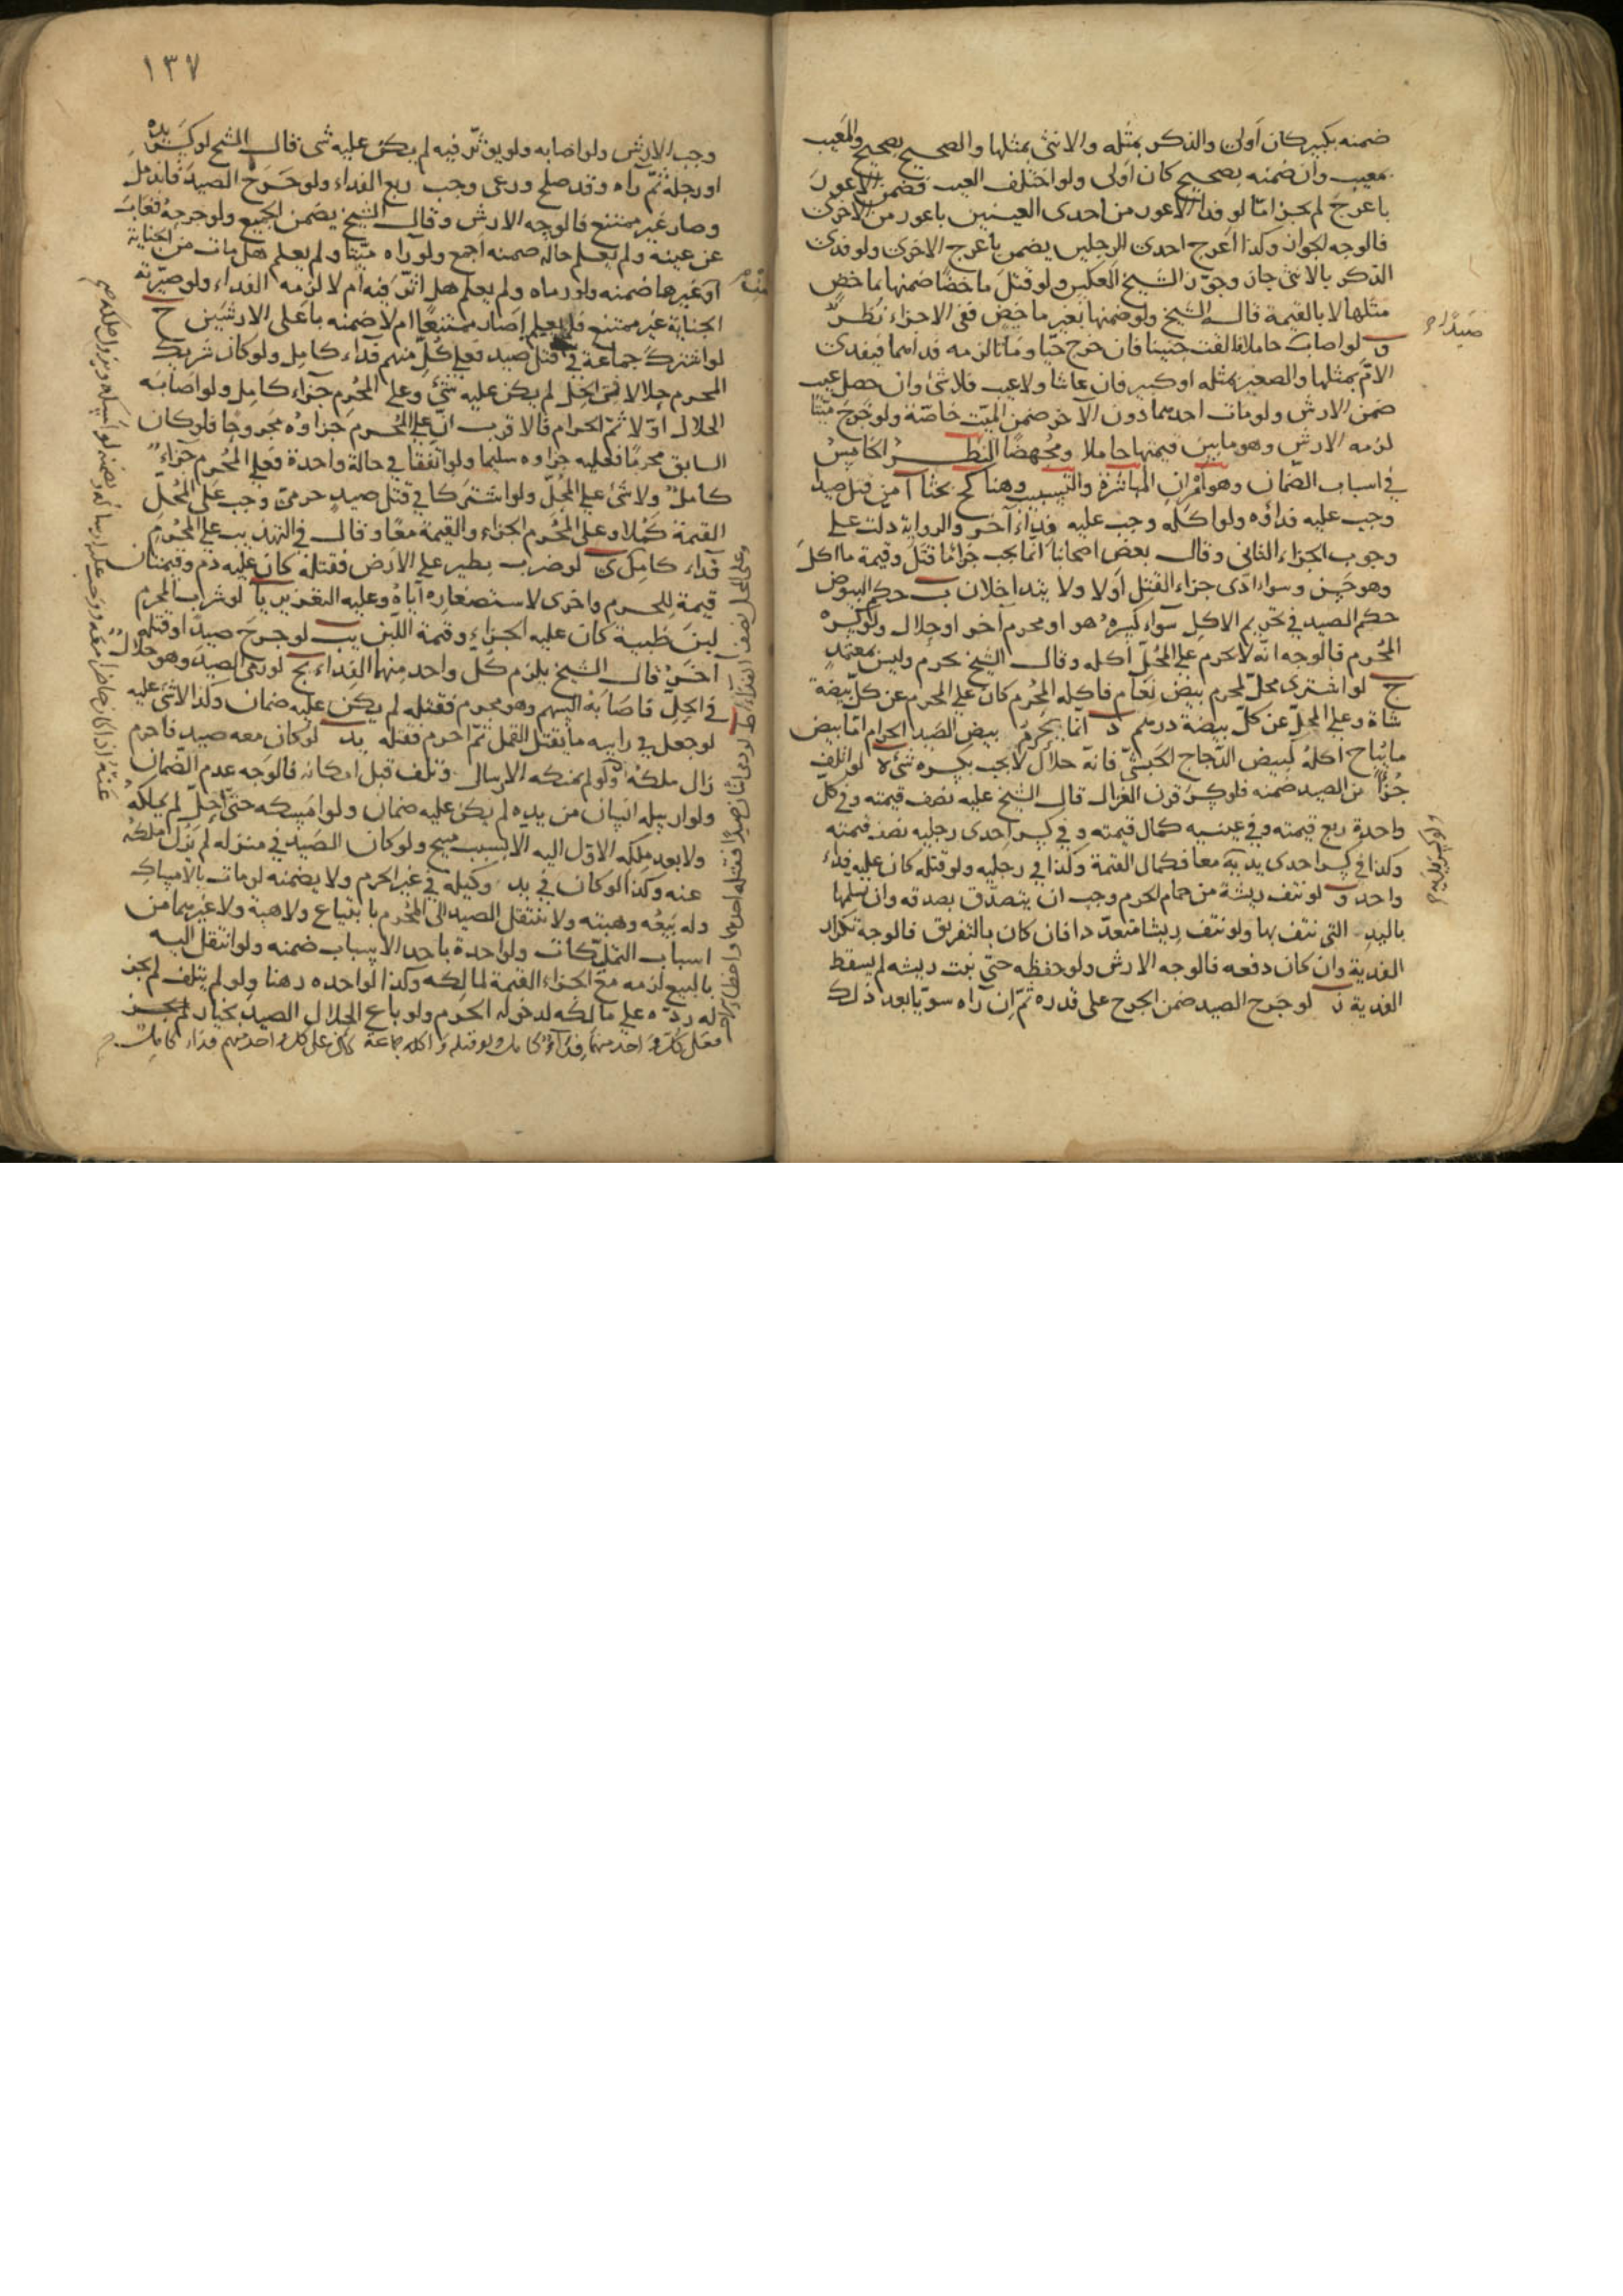 ضمنه بكبير كان أولى والذكر بمثله والانثى بمثلها والصحيح بصحيح والمعيب
بمعيب وان ضمنه بصحيح كان أولى ولو اختلف العيب فضمن الاعور
باعرج لم يجز امّا لو فدا الاعور من احدى العينين باعور من الاخرى
فالوجه الجواز وكذا اعرج احدى الرجلين يضمن باعرج الاخرى ولو فدى
الذكر بالانثى جاز وجوّز الشيخ العكس ولو قتل ماخضا ضمنها بماخض
مثلها لا بالقيمة قاله الشيخ ولو ضمنها بغير ماخض ففى الاجزاء نظر
و لو اصاب حاملا فالقت جنينا فان خرج حيّا وماتا لزمه فداهما فيفدى
صيدًا
الامّ بمثلها والصغير بمثله او كبير فان عاشا ولا عيب فلا شئ وان حصل عيب
ضمن الارش ولو مات احدهما دون الآخر ضمن الميّت خاصّة ولو خرج ميّتا
لزمه الارش وهو ما بين قيمتها حاملا ومُجهضًا النظر الخامس
فى اسباب الضمان وهو امران المباشرة والتسبيب وهنا كح بحثا آ من قتل صيدا
وجب عليه فداؤه ولو اكله وجب عليه فداء آخر والرواية دلت على
وجوب الجزاء الثانى وقال بعض اصحابنا انما يجب جزاء ما قتل وقيمة ما اكل
وهو حسن وسواء ادّى جزاء القتل اولا ولا يتداخلان ب حكم البيوض
حكم الصيد فى تحريم الاكل سواء كسره هو او محرم آخر او حلال ولو كسره
المُحرم فالوجه انه لا يحرم على المُحلّ اكله وقال الشيخ يحرم وليس بمعتمد
ج لو اشترى محلّ لمحرم بيض نعام فاكله المُحرم كان على المحرم عن كلّ بيضة
شاة وعلى المحلّ عن كلّ بيضة درهم د انّما يحرم بيض الصيد الحرام امّا بيض
ما يُباح اكله كبيض الدّجاج الحبشىّ فانه حلال لا يجب بكسره شئ ه لو اتلف
جزءًا من الصيد ضمنه فلو كسر قرن الغزال قال الشيخ عليه نصف قيمته وفى كلّ
واحدة ربع قيمته وفى عينيه كمال قيمته وفى كسر احدى رجليه نصف قيمته
وكذا فى كسر احدى يديه معا فكمال القيمة وكذا فى رجليه ولو قتله كان عليه فداء
ولو كسر يديه
واحد و لو نتف ريشة من حمام الحرم وجب ان يتصدّق بصدقه وان يسلمها
باليد التى نتف بها ولو نتف ريشا متعدّدا فان كان بالتفريق فالوجه تكرار
الفدية وان كان دفعه فالوجه الارش ولو حفظه حتى نبت ريشه لم يسقط
الفدية ز لو جرح الصيد ضمن الجرح على قدره ثمّ ان رآه سويّا بعد ذلك
١٣٧
وجب الارش ولو اصابه ولو يؤثّر فيه لم يكن عليه شى قال الشيخ لو كسر يده
او رجله ثمّ رآه وقد صلح ورعى وجب ربع الفداء ولو جرح الصيد فاندمل
وصار غير ممتنع فالوجه الارش وقال الشيخ يضمن الجميع ولو جرحه فغاب
عن عينه ولم يعلم حاله ضمنه اجمع ولو رآه ميّتا ولم يعلم هل مات من الجناية
او غيرها ضمنه ولو رماه ولم يعلم هل اثّر فيه ام لا لزمه الفداء ولو صيّرته
الجناية غير ممتنع فلم يعلم أصار ممتنعًا ام لا ضمنه باعلى الارشين ح
لو اشترك جماعة فى قتل صيد فعلى كلّ منهم فداء كامل ولو كان شريك
المحرم حلالا فى الحل لم يكن عليه شئ وعلى المُحرم جزاء كامل ولو اصابه
الحلال اوّلا ثمّ الحرام فالاقرب انّ على المُحرم جزاؤه مجروحا فلو كان
السابق محرمًا فعليه جزاوه سليما ولو اتفقا فى حالة واحدة فعلى المُحرم جزاء
كامل ولا شئ على المُحلّ ولو اشتركا فى قتل صيد حرمىّ وجب على المُحلّ
القيمة كملا وعلى المُحرم الجزاء والقيمة معًا وقال فى التهذيب على المُحرم
فداء كامل ى لو ضرب بطير على الارض فقتله كان عليه دم وقيمتان
وعلى المحل نصف الفداء ط لو رمى اثنان صيدًا فقتله احدهما واخطأ الآخر
قيمة للحرم واخرى لاستصغاره ايّاه وعليه التعزير يا لو شرب المحرم
لبن ظبية كان عليه الجزاء وقيمة اللّبن يب لو جرح صيدا او قتله
آخر قال الشيخ يلزم كلّ واحد منهما الفداء يج لو رمى الصيد وهو حلال
فى الحلّ فاصابه السهم وهو محرم فقتله لم يكن عليه ضمان وكذا لا شئ عليه
لو جعل فى راسه ما يقتل القمل ثمّ احرم فقتله يد لو كان معه صيد فاحرم
زال ملكه ولو لم يمكنه الارسال وتلف قبل امكانه فالوجه عدم الضمان
ولو ارسله انسان من يده لم يكن عليه ضمان ولو امسكه حتى احلّ لم يملكه
ولا بعد ملكه الاوّل اليه الّا بسبب مبيح ولو كان الصيد فى منزله لم يزل ملكه
عنه وكذا لو كان فى يد وكيله فى غير الحرم ولا يضمنه لو مات بالامساك
وله بيعه وهبته ولا ينتقل الصيد الى المُحرم بابتياع ولا هبة ولا غيرهما من
اسباب التملّكات ولو اخذه باحد الاسباب ضمنه ولو انتقل اليه
بالبيع لزمه مع الجزاء القيمة لمالكه وكذا لو اخذه رهنا ولو لم يتلف لم يجز
له ردّه على مالكه لدخوله الحرم ولو باع الحلال الصيد بخيار ثمّ
فعلى كلّ واحد منهما فداء كامل ولو قتله واكله جماعة كان على كل واحد منهم فداء كامل